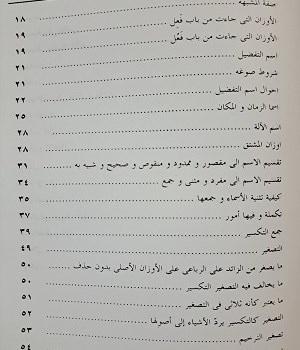 صفة المشبهة
الأوزان التى جاءت من باب فَعِل ١٨
الأوزان التى جاءت من باب فَعُل ١٩
اسم التفضيل ٢١
شروط صوغه ٢١
احوال اسم التفضيل ٢٢
اسما الزمان و المكان ٢٥
اسم الآلة ٢٨
اوزان المشتق ٢٨
تقسيم الاسم الى مقصور و ممدود و منقوص و صحيح و شبيه به ٣١
تقسيم الاسم الى مفرد و مثنى و جمع ٣٤
كيفية تثنية الأسماء و جمعها ٣٥
تكملة و فيها أمور ٣٧
جمع التكسير ٣٩
التصغير ٤٩
ما يصغر من الزائد على الرباعى على الأوزان الأصلى بدون حذف ٥٠
ما يخالف فيه التصغير التكسير ٥٠
ما يعتبر كأنه ثلاثى فى التصغير ٥١
التصغير كالتكسير يردّ الأشياء إلى أصولها ٥٢
تصغير الترحيم ٥٣
٥٤